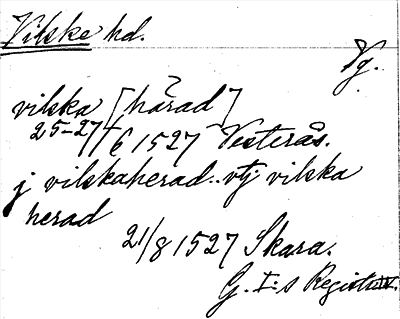 Vilske hd.
Vg.
vilska [härad]
25-27/6 1527 Vesterås.
j vilskaherad.. vtj vilska
herad
21/8 1527 Skara.
G. I:s Registr.